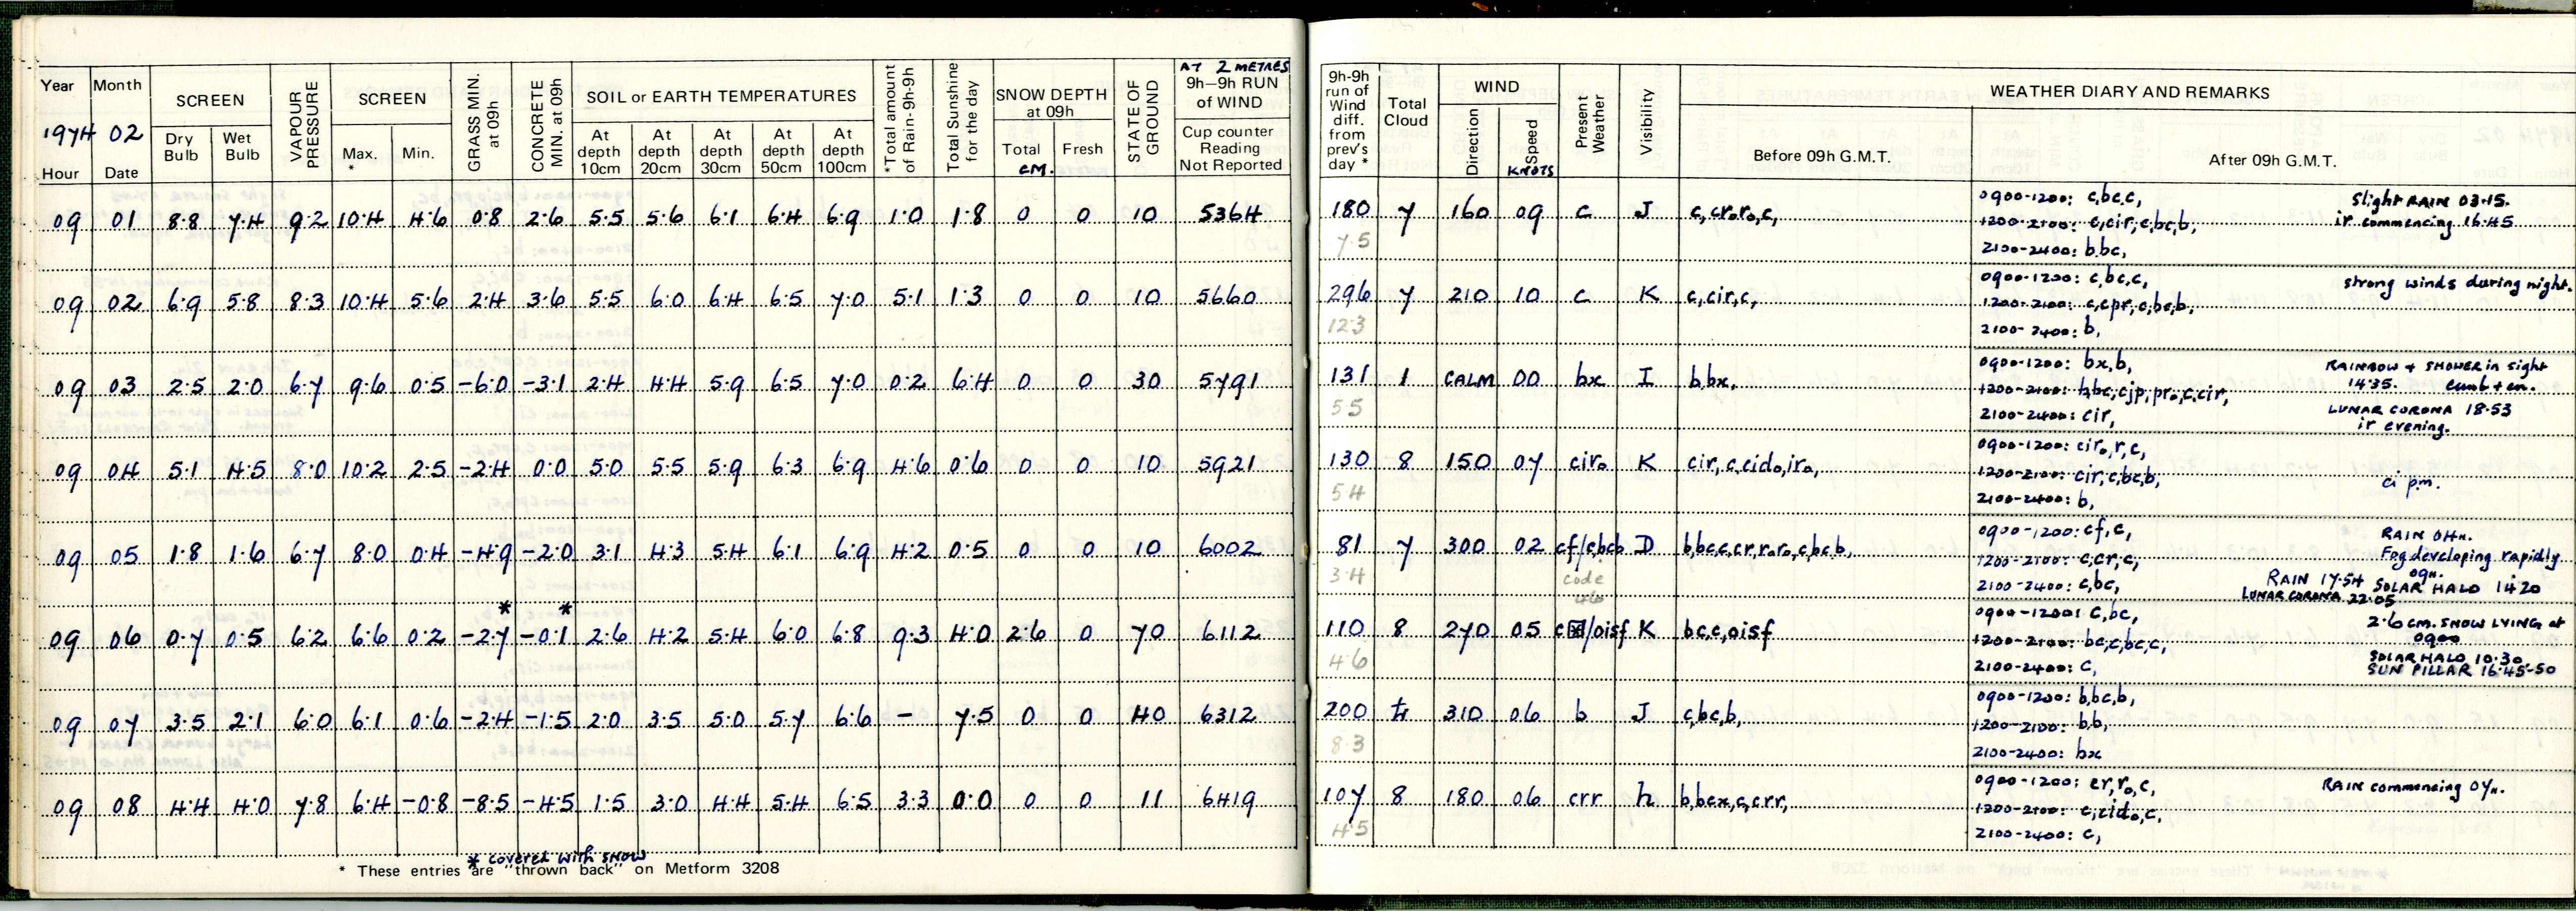 Year Month SCREEN VAPOUR PRESSURE SCREEN GRASS MIN. at 09h CONCRETE MIN. at 09h SOIL or EARTH TEMPERATURES *Total amount of Rain-9h-9h Total Sunshine for the day SNOW DEPTH at 09h STATE OF GROUND AT 2 METRES 9h–9h RUN of WIND
1974 02 Dry Bulb Wet Bulb Max. * Min. At depth 10cm At depth 20cm At depth 30cm At depth 50cm At depth 100cm Total CM. Fresh Cup counter Reading Not Reported
Hour Date
09 01 8.8 7.4 9.2 10.4 4.6 0.8 2.6 5.5 5.6 6.1 6.4 6.9 1.0 1.8 0 0 10 5364
09 02 6.9 5.8 8.3 10.4 5.6 2.4 3.6 5.5 6.0 6.4 6.5 7.0 5.1 1.3 0 0 10 5660
09 03 2.5 2.0 6.7 9.6 0.5 -6.0 -3.1 2.4 4.4 5.9 6.5 7.0 0.2 6.4 0 0 30 5791
09 04 5.1 4.5 8.0 10.2 2.5 -2.4 0.0 5.0 5.5 5.9 6.3 6.9 4.6 0.6 0 0 10 5921
09 05 1.8 1.6 6.7 8.0 0.4 -4.9 -2.0 3.1 4.3 5.4 6.1 6.9 4.2 0.5 0 0 10 6002
* *
09 06 0.7 0.5 6.2 6.6 0.2 -2.7 -0.1 2.6 4.2 5.4 6.0 6.8 9.3 4.0 2.6 0 70 6112
09 07 3.5 2.1 6.0 6.1 0.6 -2.4 -1.5 2.0 3.5 5.0 5.7 6.6 - 7.5 0 0 40 6312
09 08 4.4 4.0 7.8 6.4 -0.8 -8.5 -4.5 1.5 3.0 4.4 5.4 6.5 3.3 0.0 0 0 11 6419
* covered with snow
* These entries are "thrown back" on Metform 3208
9h-9h run of Wind diff. from prev's day * Total Cloud WIND Direction Speed KNOTS Present Weather Visibility WEATHER DIARY AND REMARKS
Before 09h G.M.T. After 09h G.M.T.
180 7 160 09 c J c,cr₀r₀,c, 0900-1200: c,bc,c, Slight RAIN 03.15.
7.5 1200-2100: c,cir,c,bc,b, ir commencing 16.45
2100-2400: b,bc,
296 7 210 10 c K c,cir,c, 0900-1200: c,bc,c, strong winds during night.
12.3 1200-2100: c,cpr,c,bc,b,
2100-2400: b,
131 1 CALM 00 bx I b,bx, 0900-1200: bx,b, RAINBOW + SHOWER in sight
5.5 1200-2100: b,bc,cjp,pr₀,c,cir, 14.35. cumb + en.
2100-2400: cir, LUNAR CORONA 18.53
ir evening.
130 8 150 07 cir₀ K cir,c,cid₀,ir₀, 0900-1200: cir₀,r,c,
5.4 1200-2100: cir,c,bc,b, ci pm.
2100-2400: b,
81 7 300 02 cf/cbcb D b,bc,c,cr,r₀r₀,c,bc,b, 0900-1200: cf,c, RAIN 04H.
3.4 code 46 1200-2100: c,cr,c, Fog developing rapidly 09H.
2100-2400: c,bc, RAIN 17.54 SOLAR HALO 14.20
LUNAR CORONA 22.05
110 8 270 05 /oisf K bc,c,oisf 0900-1200: c,bc, 2.6 CM. SNOW LYING at 0900
4.6 1200-2100: bc,c,bc,c, SOLAR HALO 10.30
2100-2400: c, SUN PILLAR 16.45-50
200 310 06 b J c,bc,b, 0900-1200: b,bc,b,
8.3 1200-2100: b,b,
2100-2400: bx
107 8 180 06 crr h b,bcx,c,crr, 0900-1200: cr,r₀,c, RAIN commencing 07H.
4.5 1200-2100: c,cid₀,c,
2100-2400: c,